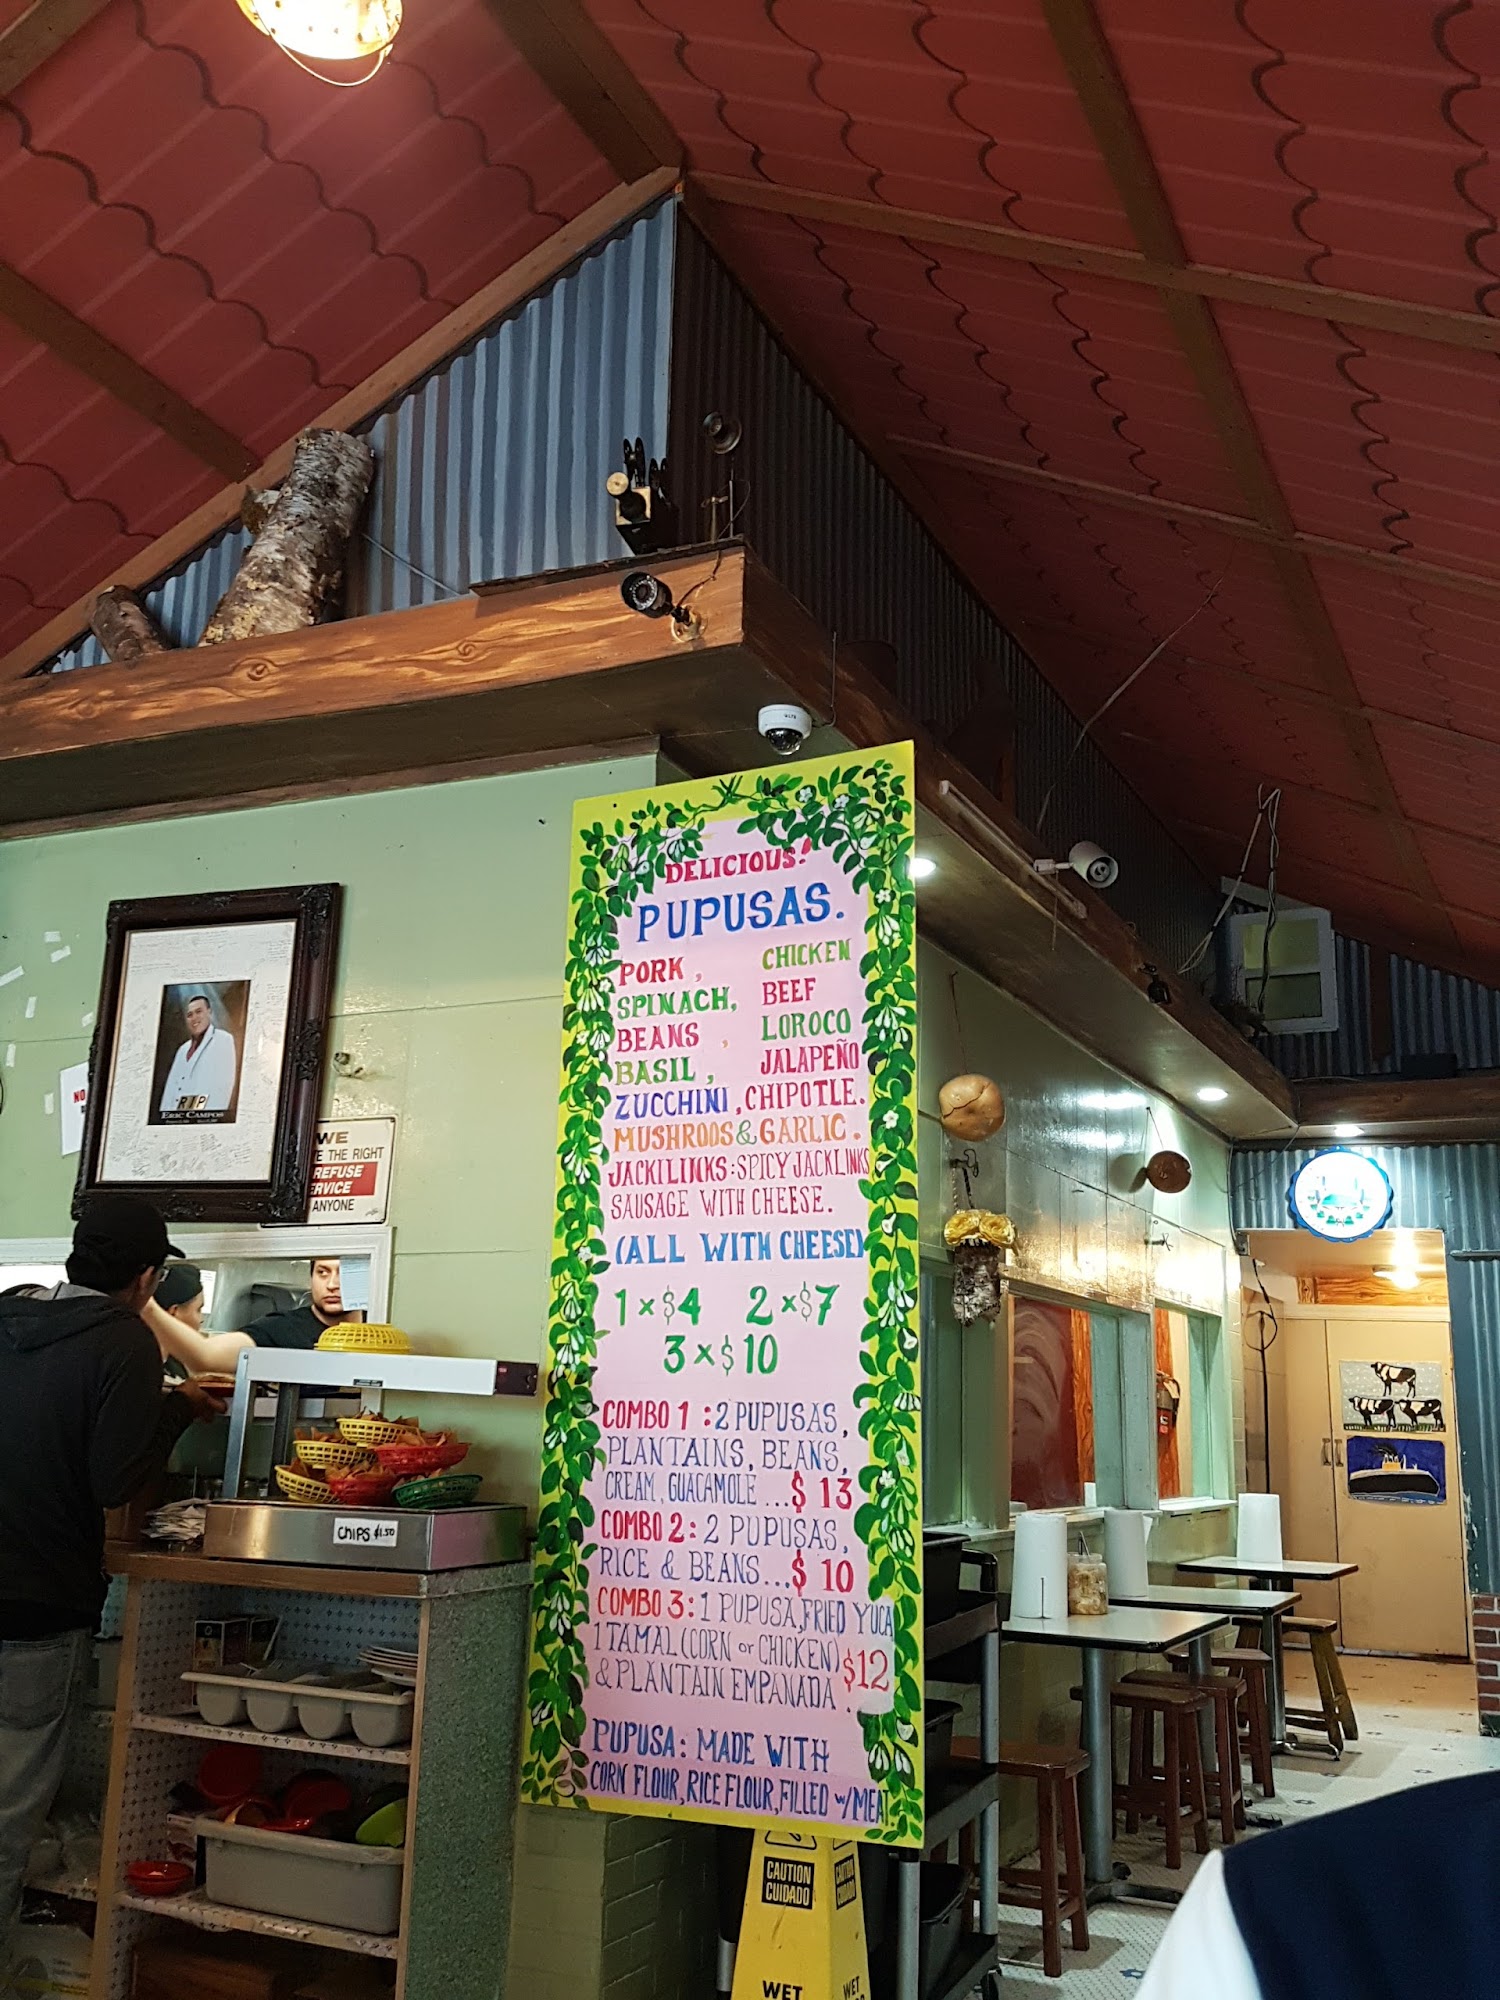 DELICIOUS!
PUPUSAS.
PORK, CHICKEN
SPINACH, BEEF
BEANS, LOROCO
BASIL, JALAPEÑO
ZUCCHINI, CHIPOTLE.
MUSHROOS & GARLIC.
JACKILINKS: SPICY JACKLINKS
SAUSAGE WITH CHEESE.
(ALL WITH CHEESE)
1 x $4 2 x $7
3 x $10
COMBO 1 : 2 PUPUSAS,
PLANTAINS, BEANS,
CREAM, GUACAMOLE ...$ 13
COMBO 2: 2 PUPUSAS,
RICE & BEANS...$ 10
COMBO 3: 1 PUPUSA, FRIED YUCA
1 TAMAL (CORN or CHICKEN)
& PLANTAIN EMPANADA. $12
PUPUSA: MADE WITH
CORN FLOUR, RICE FLOUR, FILLED w/ MEAT.
RIP
ERIC CAMPOS
NO
WE
E THE RIGHT
REFUSE
ERVICE
ANYONE
CHIPS $1.50
CAUTION
CUIDADO
WET
CUIDADO
WET